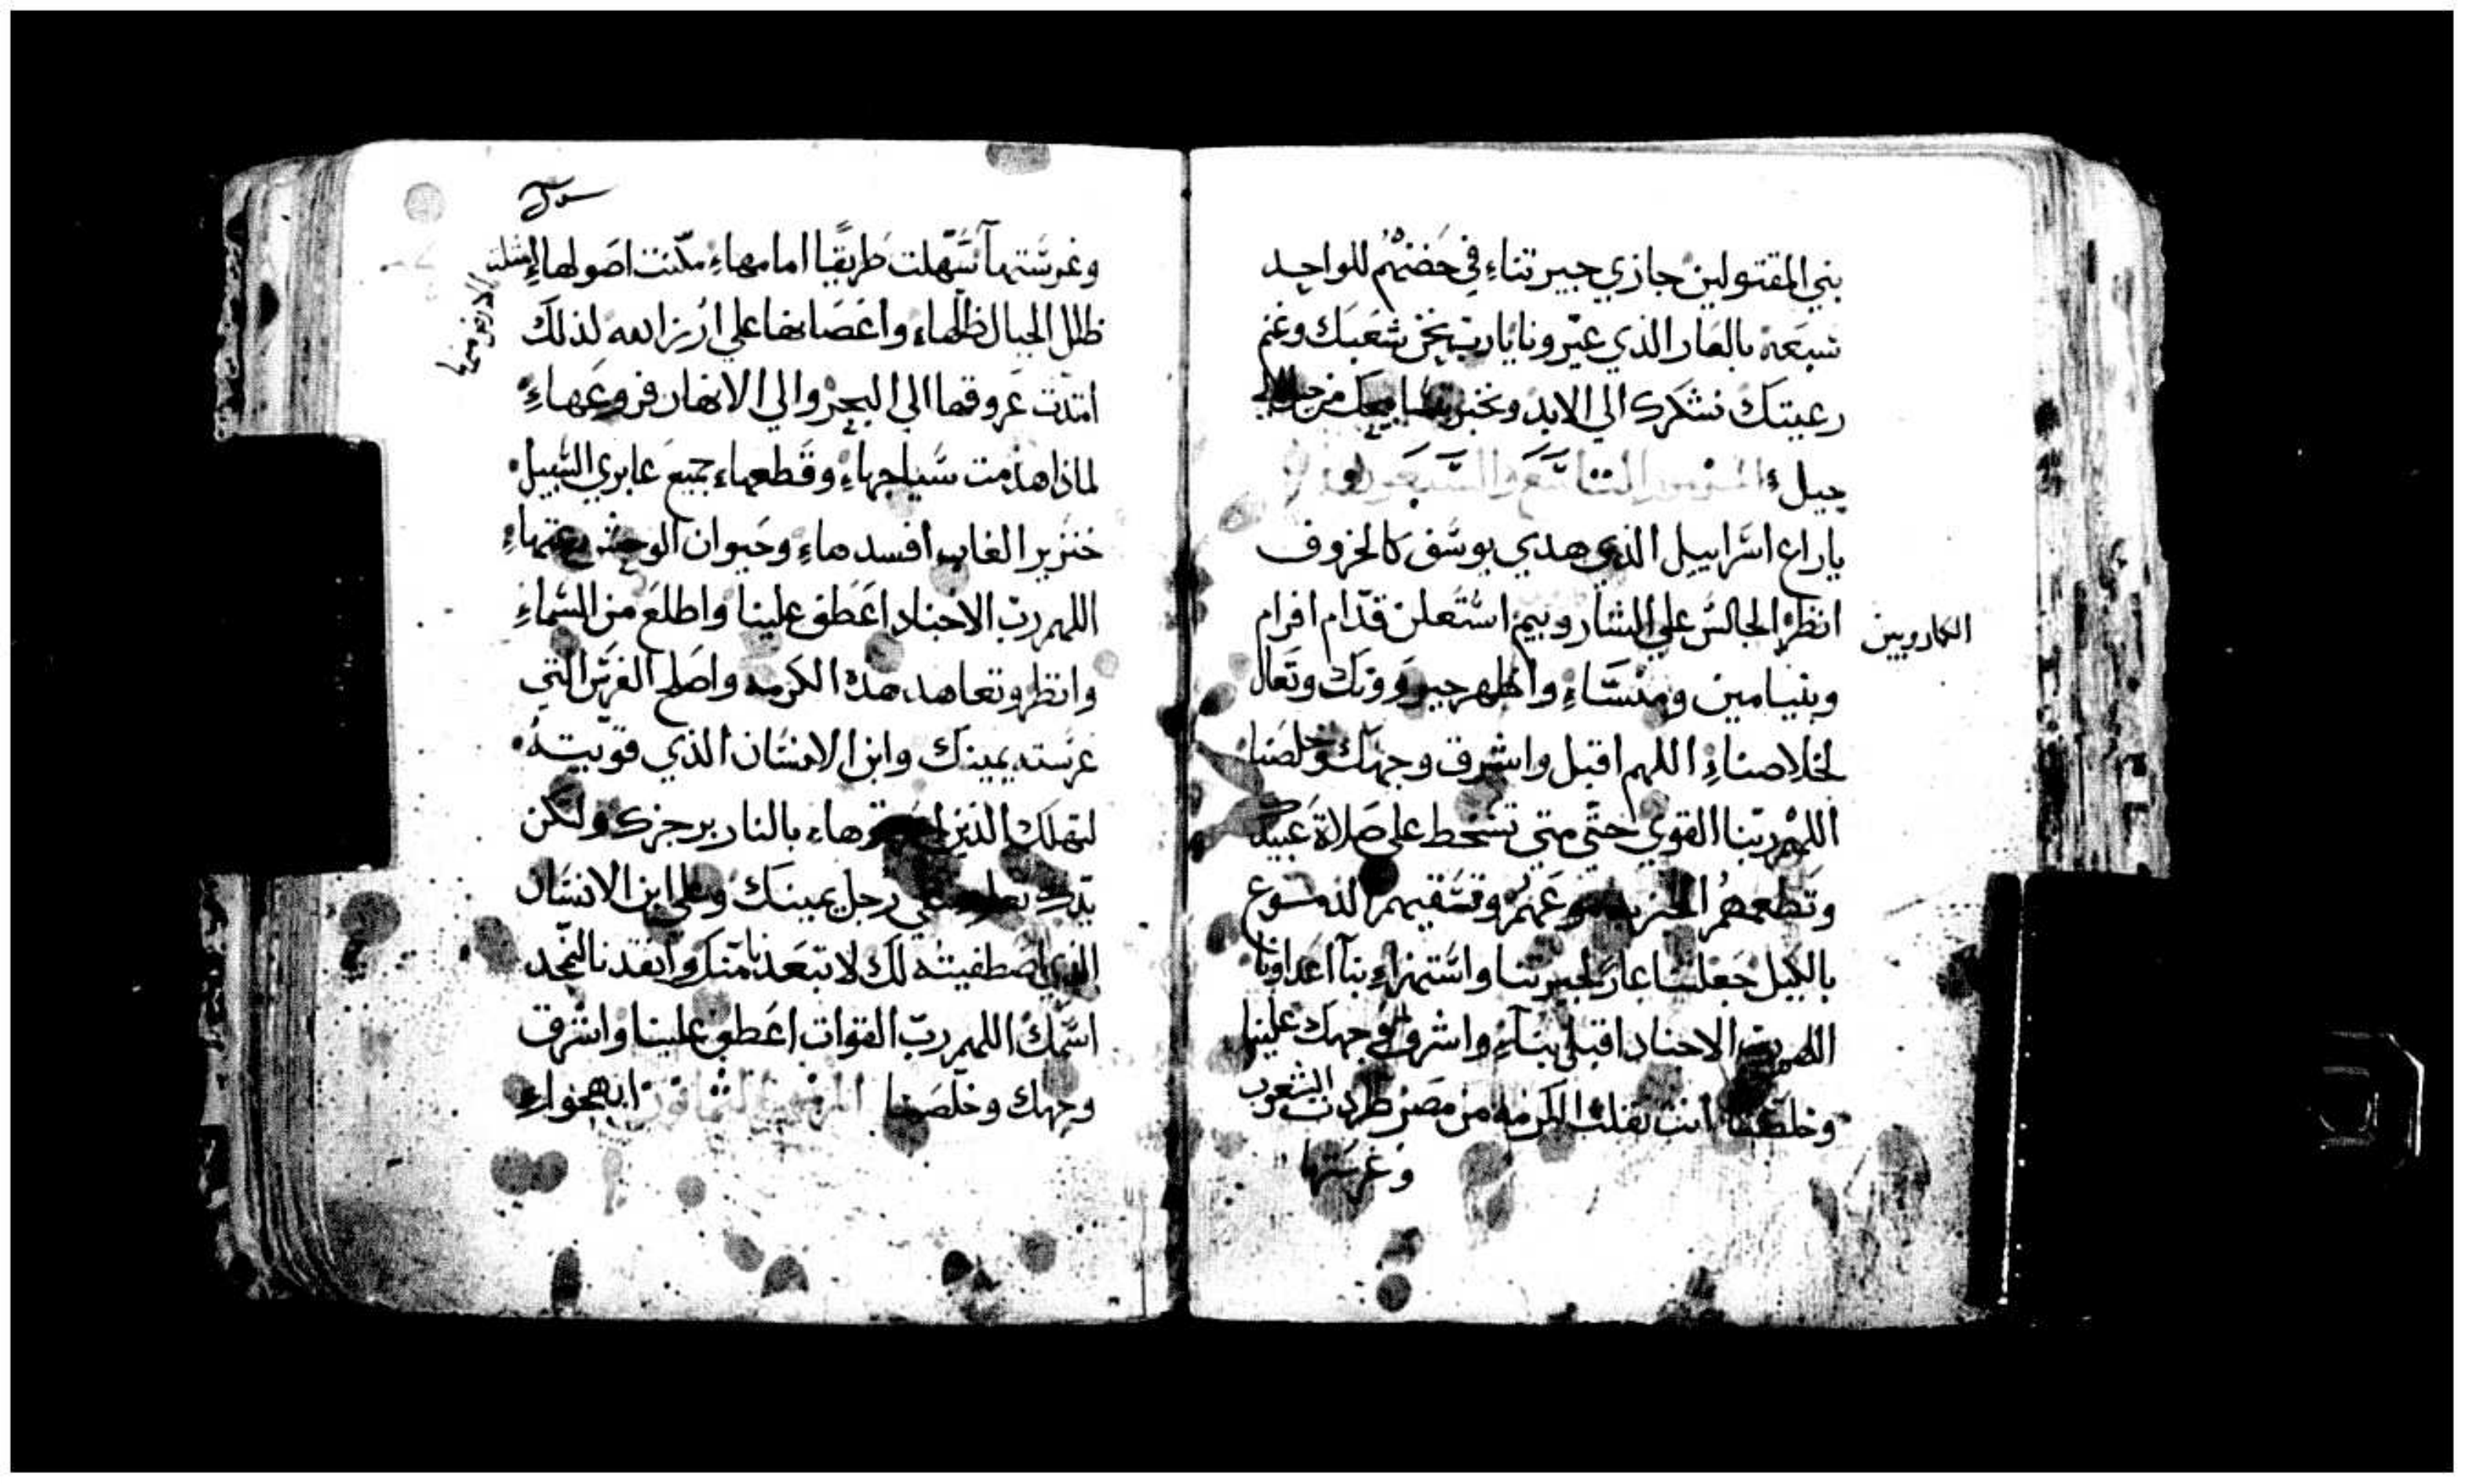 بني المقتولين جازي جيرتناء في حضنهم للواحد
سبعة بالعار الذي عيرونا يارب نحن شعبك وغنم
رعيتك نشكرك الي الابد ونخبر من جيل الي
جيل المزمور التاسع والسبعون
ياراع اسراييل الذي هدي يوسف كالخروف
انظر الجالس علي الشاروبيم استعلن قدام افرام
الكاروبين
وبنيامين ومنسّاء واظهر جبروتك وتعال
لخلاصناء اللهم اقبل واشرق وجهك وخلصنا
اللهم ربنا القوي حتّي متي تسخط علي صلاة عبيدك
وتطعمهم الخبز وتسقيهم الدموع
بالكيل جعلتنا عارًا لجيرتنا واستهزاء بنا اعداونا
اللهم رب الاجناد اقبل بناء واشرق وجهك علينا
وخلصنا انت نقلت الكرمه من مصر طردت الشعوب
وغرستها
وغرستها سهّلت طريقًا امامهاء مكّنت اصولهاء امتلت
الارض منها
ظلل الجبال ظلّهاء واغصانها علي ارز الله لذلك
امتدت عروقها الي البحر والي الانهار فروعهاء
لماذا هدمت سياجهاء وقطعهاء جميع عابري السبيل
خنزير الغاب افسدهاء وحيوان الوحش رعتهاء
اللهم ربّ الاجناد اعطف علينا واطلع من السماء
وانظر وتعاهد هذه الكرمه واصلح الغرس التي
غرسته يمينك وابن الانسان الذي قويته
لتهلك الذين بالنار برجزك ولكن
يدك علي رجل يمينك وعلي ابن الانسان
الذي اصطفيته لك لا تبعدنا منك وانقدنا لنمجد
اسمك اللهم ربّ القوات اعطف علينا واشرق
وجهك وخلّصنا المزمور الثمانون ابتهجواء